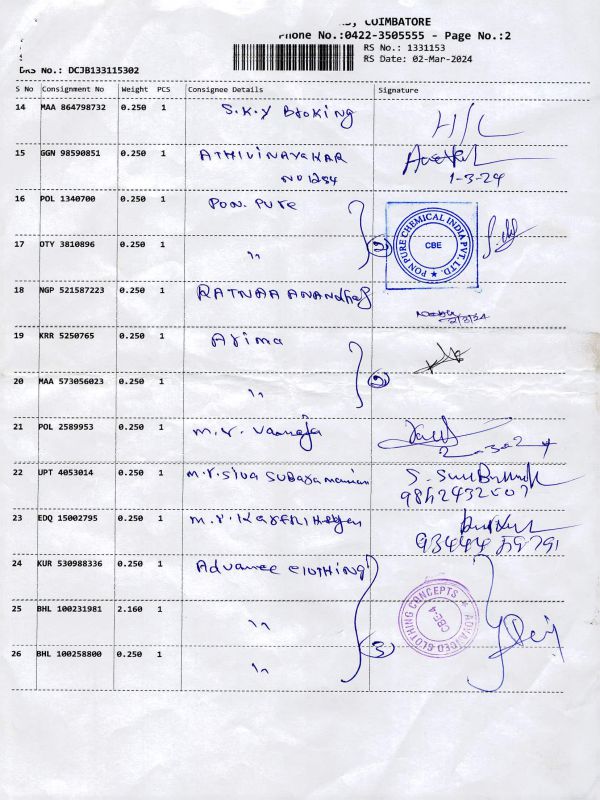 COIMBATORE
Phone No.:0422-3505555 - Page No.:2
RS No.: 1331153
RS Date: 02-Mar-2024
DRS No.: DCJB133115302
S No Consignment No Weight PCS Consignee Details Signature
14 MAA 864798732 0.250 1 S.K.Y Broking H/C
15 GGN 98590851 0.250 1 ATHIVINAYAKAR
NO 1254 1-3-24
16 POL 1340700 0.250 1 Pon. Pure
PON PURE CHEMICAL INDIA PVT. LTD. ★ CBE
17 DTY 3810896 0.250 1 " 2
18 NGP 521587223 0.250 1 RATNAA ANANDhas
2/3/24
19 KRR 5250765 0.250 1 Arima
20 MAA 573056023 0.250 1 " 2
21 POL 2589953 0.250 1 m.r. Vanaja
2-3-24
22 UPT 4053014 0.250 1 m.r. Siva Subaramanian
9862432507
23 EDQ 15002795 0.250 1
93444 59791
24 KUR 530988336 0.250 1 Advance Clothing
ADVANCED CLOTHING CONCEPTS ★ CBE-4
25 BHL 100231981 2.160 1 "
26 BHL 100258800 0.250 1 " 3